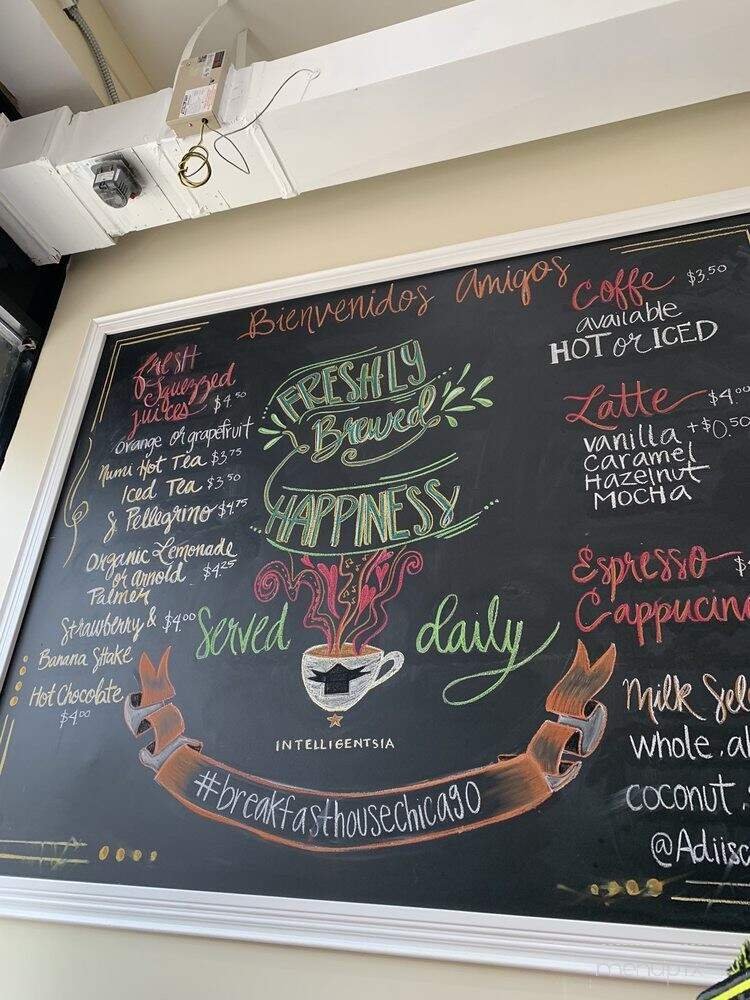 Bienvenidos Amigos
Fresh
Squezzed
juices $4.50
orange or grapefruit
Numi Hot Tea $3.75
Iced Tea $3.50
S. Pellegrino $4.75
Organic Lemonade
or arnold $4.25
Palmer
Strawberry & $4.00
Banana Shake
Hot Chocolate
$4.00
FRESHLY
Brewed
HAPPINESS
Served daily
INTELLIGENTSIA
#breakfasthousechicago
Coffe $3.50
available
HOT or ICED
Latte $4.00
vanilla +$0.50
caramel
Hazelnut
MOCHA
Espresso $
Cappucin
Milk Sel
whole, al
coconut,
@Adiisc
menupix